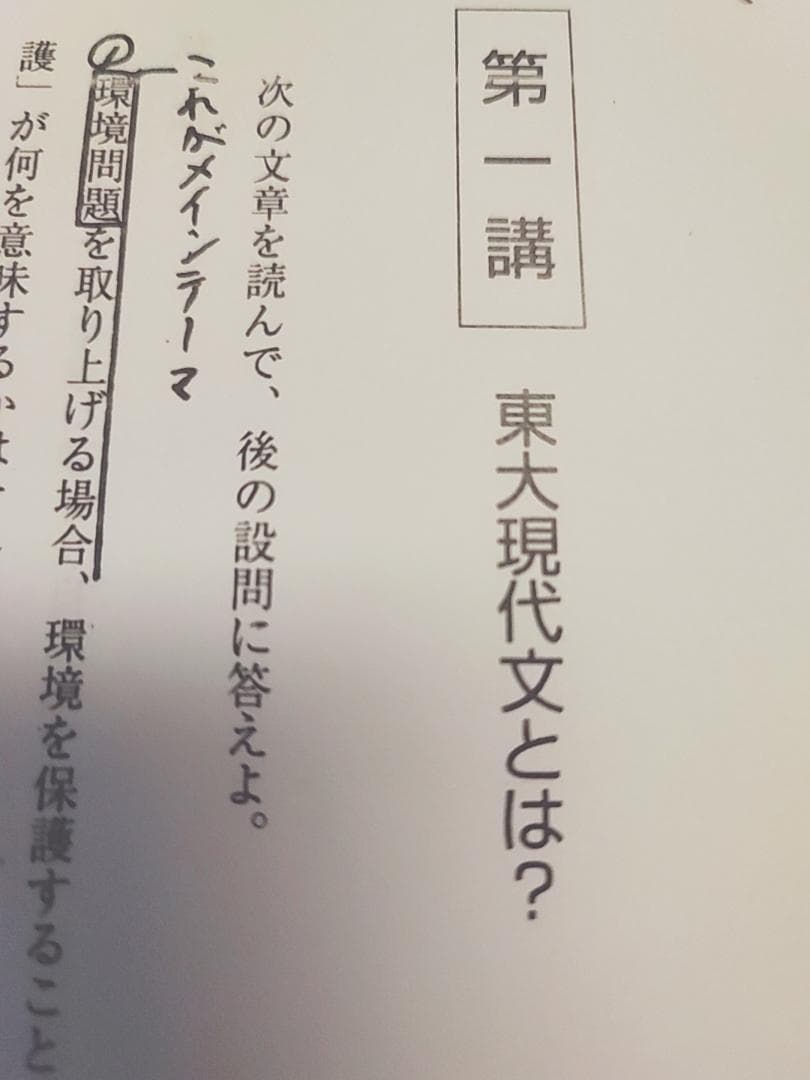 第一講
東大現代文とは?
次の文章を読んで、後の設問に答えよ。
これがメインテーマ
環境問題を取り上げる場合、環境を保護すること
護」が何を意味するかは